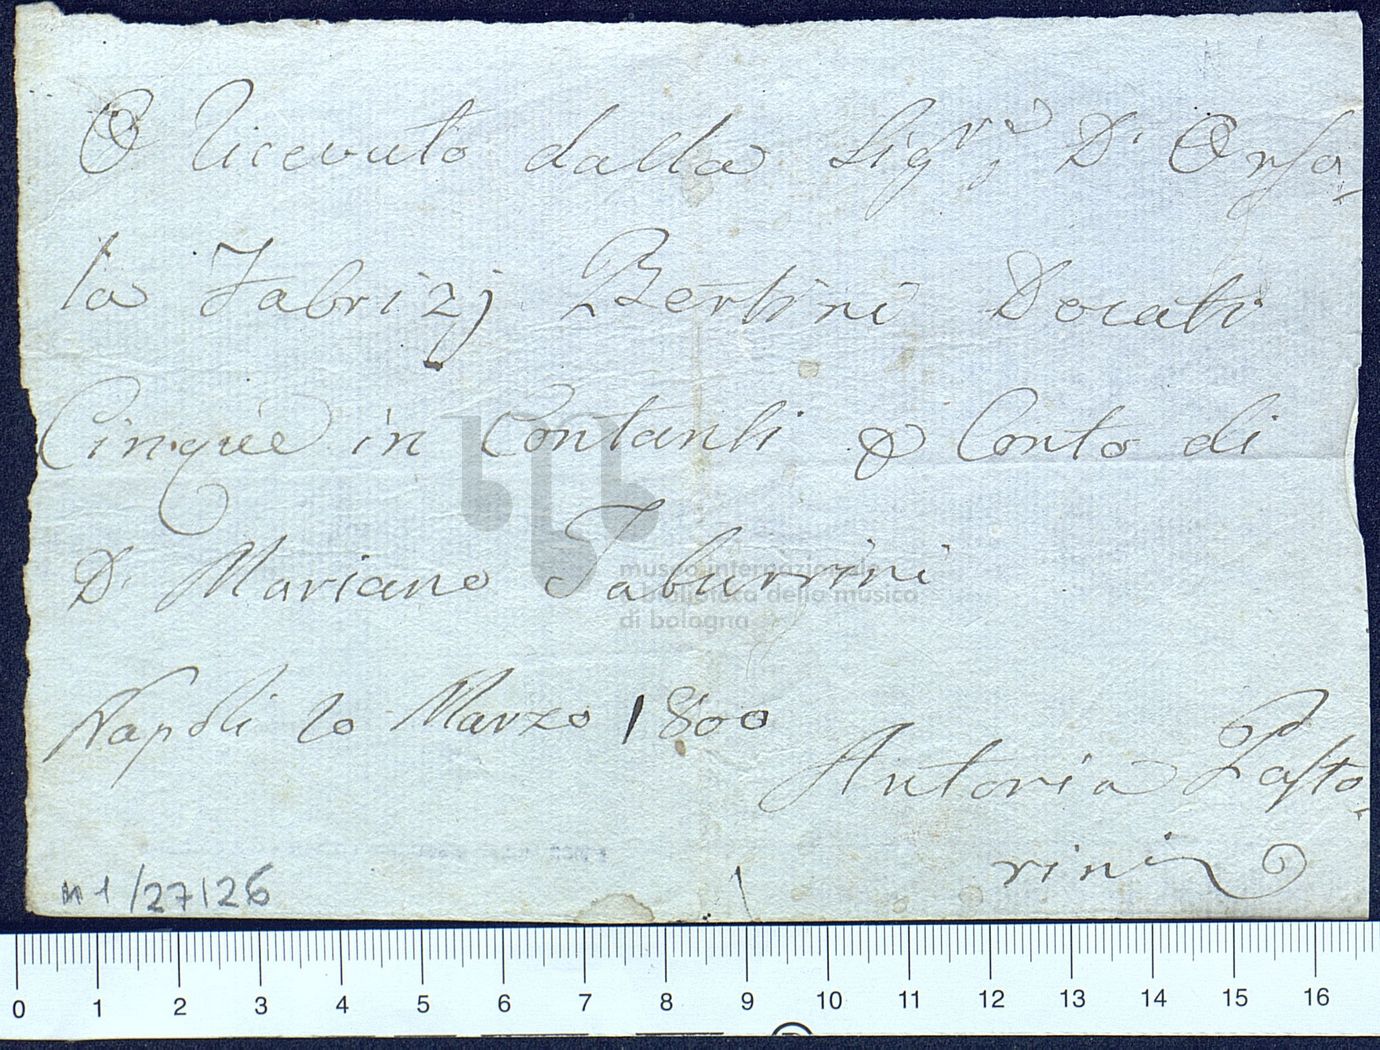 O Ricevuto dalla Sig.ra D. Orso-
la Fabrizj Bertini Docati
Cinque in Contanti a Conto di
D. Mariano Taburrini
museo internazionale
e biblioteca della musica
di bologna
Napoli 20 Marzo 1800
Antonia Pasto-
rini
n 1/27126
0 1 2 3 4 5 6 7 8 9 10 11 12 13 14 15 16